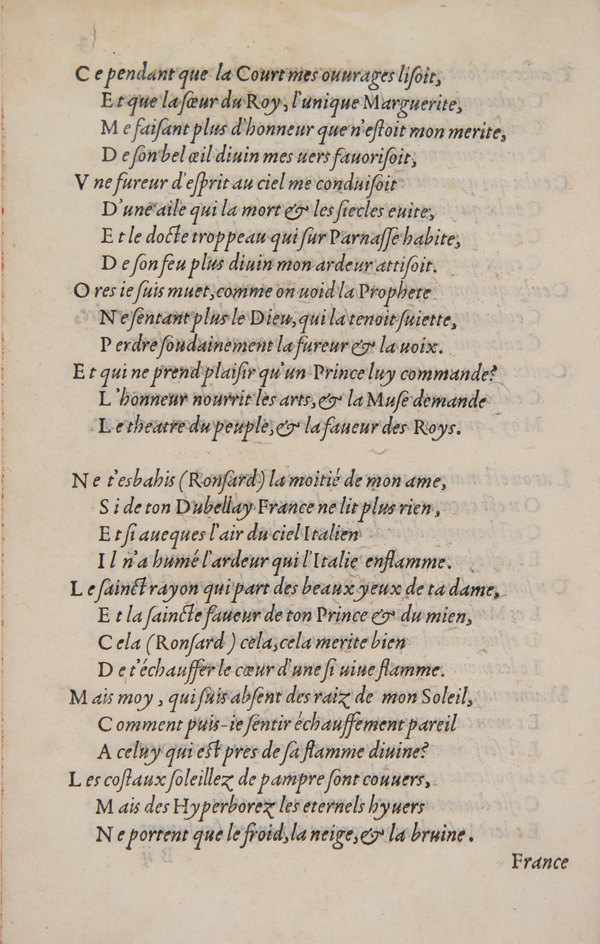 Ce pendant que la Court mes ouurages liſoit,
Et que la ſœur du Roy, l'unique Marguerite,
Me faiſant plus d'honneur que n'eſtoit mon merite,
De ſon bel œil diuin mes uers fauoriſoit,
Vne fureur d'eſprit au ciel me conduiſoit
D'une aile qui la mort & les ſiecles euite,
Et le docte troppeau qui ſur Parnaſſe habite,
De ſon feu plus diuin mon ardeur attiſoit.
Ores ie ſuis muet, comme on uoid la Prophete
Ne ſentant plus le Dieu, qui la tenoit ſuiette,
Perdre ſoudainement la fureur & la uoix.
Et qui ne prend plaiſir qu'un Prince luy commande?
L'honneur nourrit les arts, & la Muſe demande
Le theatre du peuple, & la faueur des Roys.
Ne t'esbahis (Ronſard) la moitié de mon ame,
Si de ton Dubellay France ne lit plus rien,
Et ſi aueques l'air du ciel Italien
Il n'a humé l'ardeur qui l'Italie enflamme.
Le ſainct rayon qui part des beaux yeux de ta dame,
Et la ſaincte faueur de ton Prince & du mien,
Cela (Ronſard) cela, cela merite bien
De t'échauffer le cœur d'une ſi uiue flamme.
Mais moy, qui ſuis abſent des raiz de mon Soleil,
Comment puis-ie ſentir échauffement pareil
A celuy qui eſt pres de ſa flamme diuine?
Les coſtaux ſoleillez de pampre ſont couuers,
Mais des Hyperborez les eternels hyuers
Ne portent que le froid, la neige, & la bruine.
France